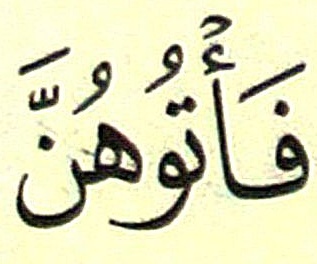 فَأْتُوهُنَّ